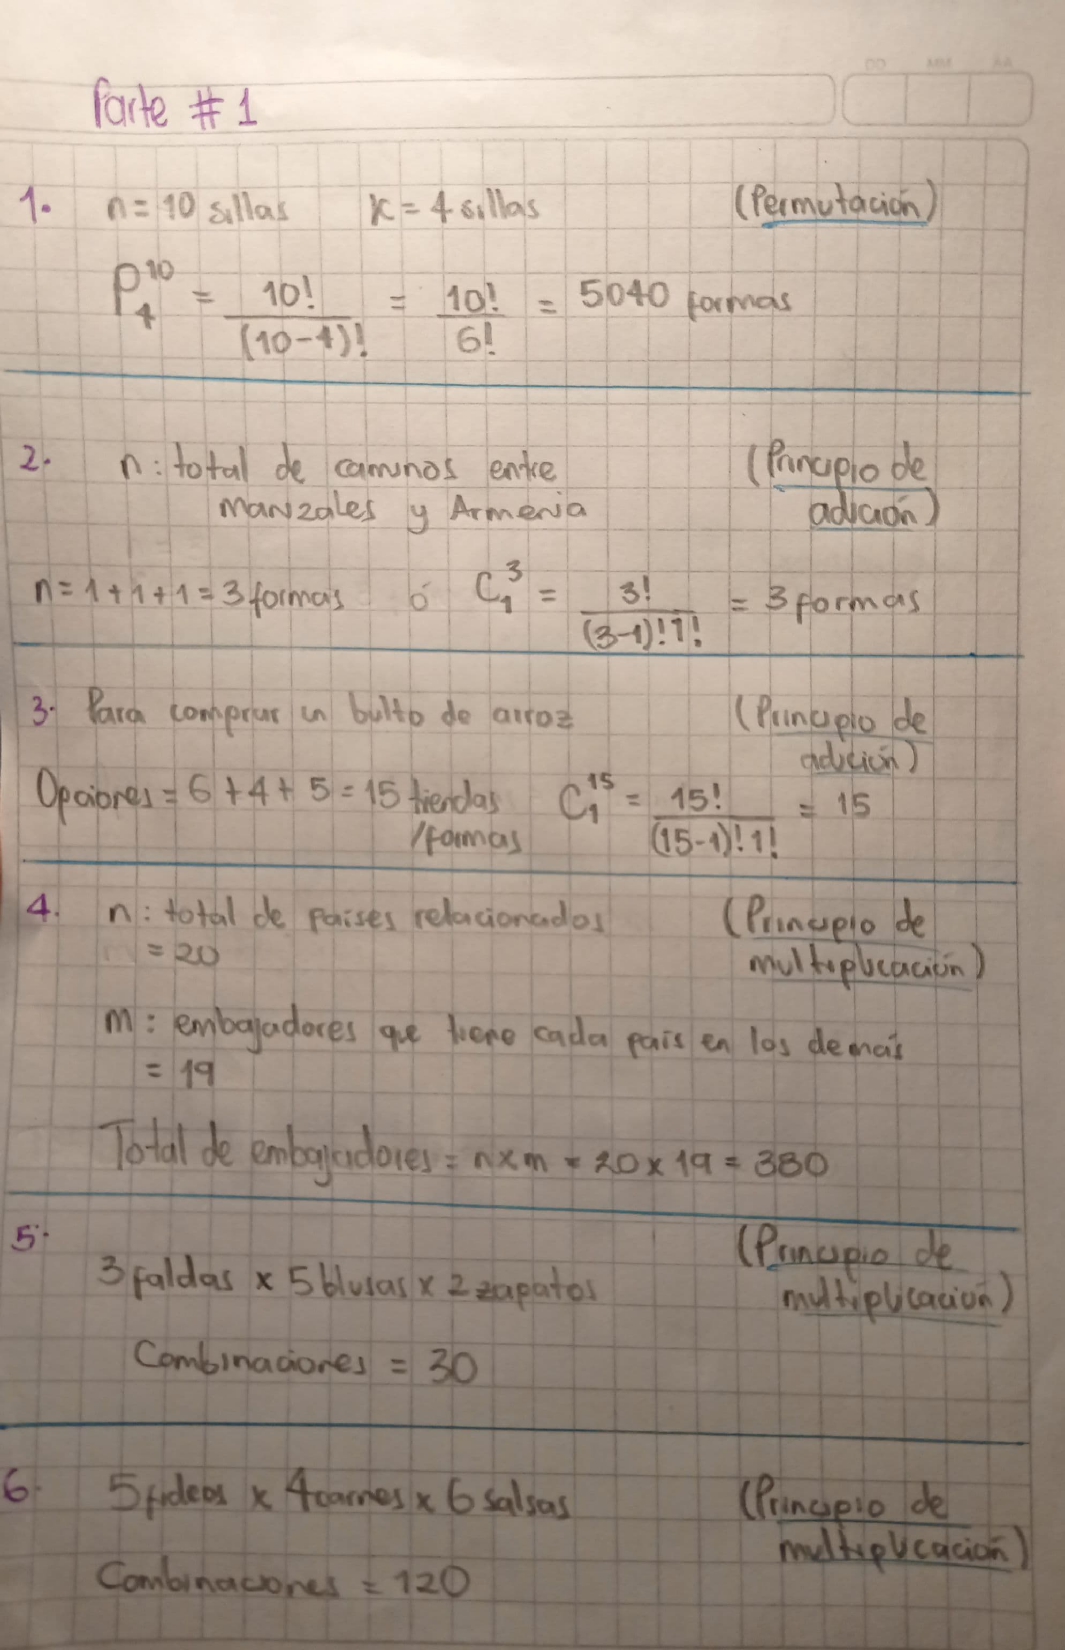 DD MM AA
Parte # 1
1. n = 10 sillas K = 4 sillas (Permutación)
P₄¹⁰ = 10! / (10-4)! = 10! / 6! = 5040 formas
2. n: total de caminos entre (Principio de
Manizales y Armenia adición)
n = 1 + 1 + 1 = 3 formas ó C₁³ = 3! / (3-1)! 1! = 3 formas
3. Para comprar un bulto de arroz (Principio de
adición)
Opciones = 6 + 4 + 5 = 15 tiendas C₁¹⁵ = 15! / (15-1)! 1! = 15
/formas
4. n: total de paises relacionados (Principio de
= 20 multiplicación)
m: embajadores que tiene cada país en los demás
= 19
Total de embajadores = n x m = 20 x 19 = 380
5. (Principio de
3 faldas x 5 blusas x 2 zapatos multiplicación)
Combinaciones = 30
6. 5 fideos x 4 carnes x 6 salsas (Principio de
multiplicación)
Combinaciones = 120